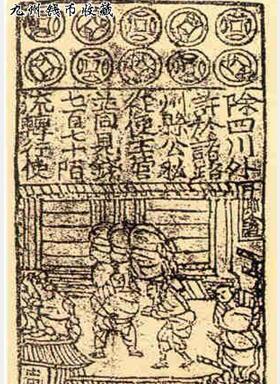 九州钱币收藏
除四川外
許於諸路
州縣公私
從便主管
並同見錢
七百七十陌
流轉行使